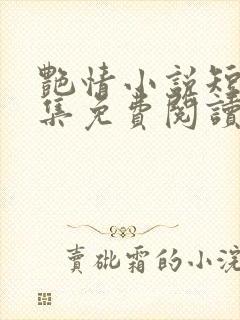 艷情小說短
集免費閱讀
賣砒霜的小浣